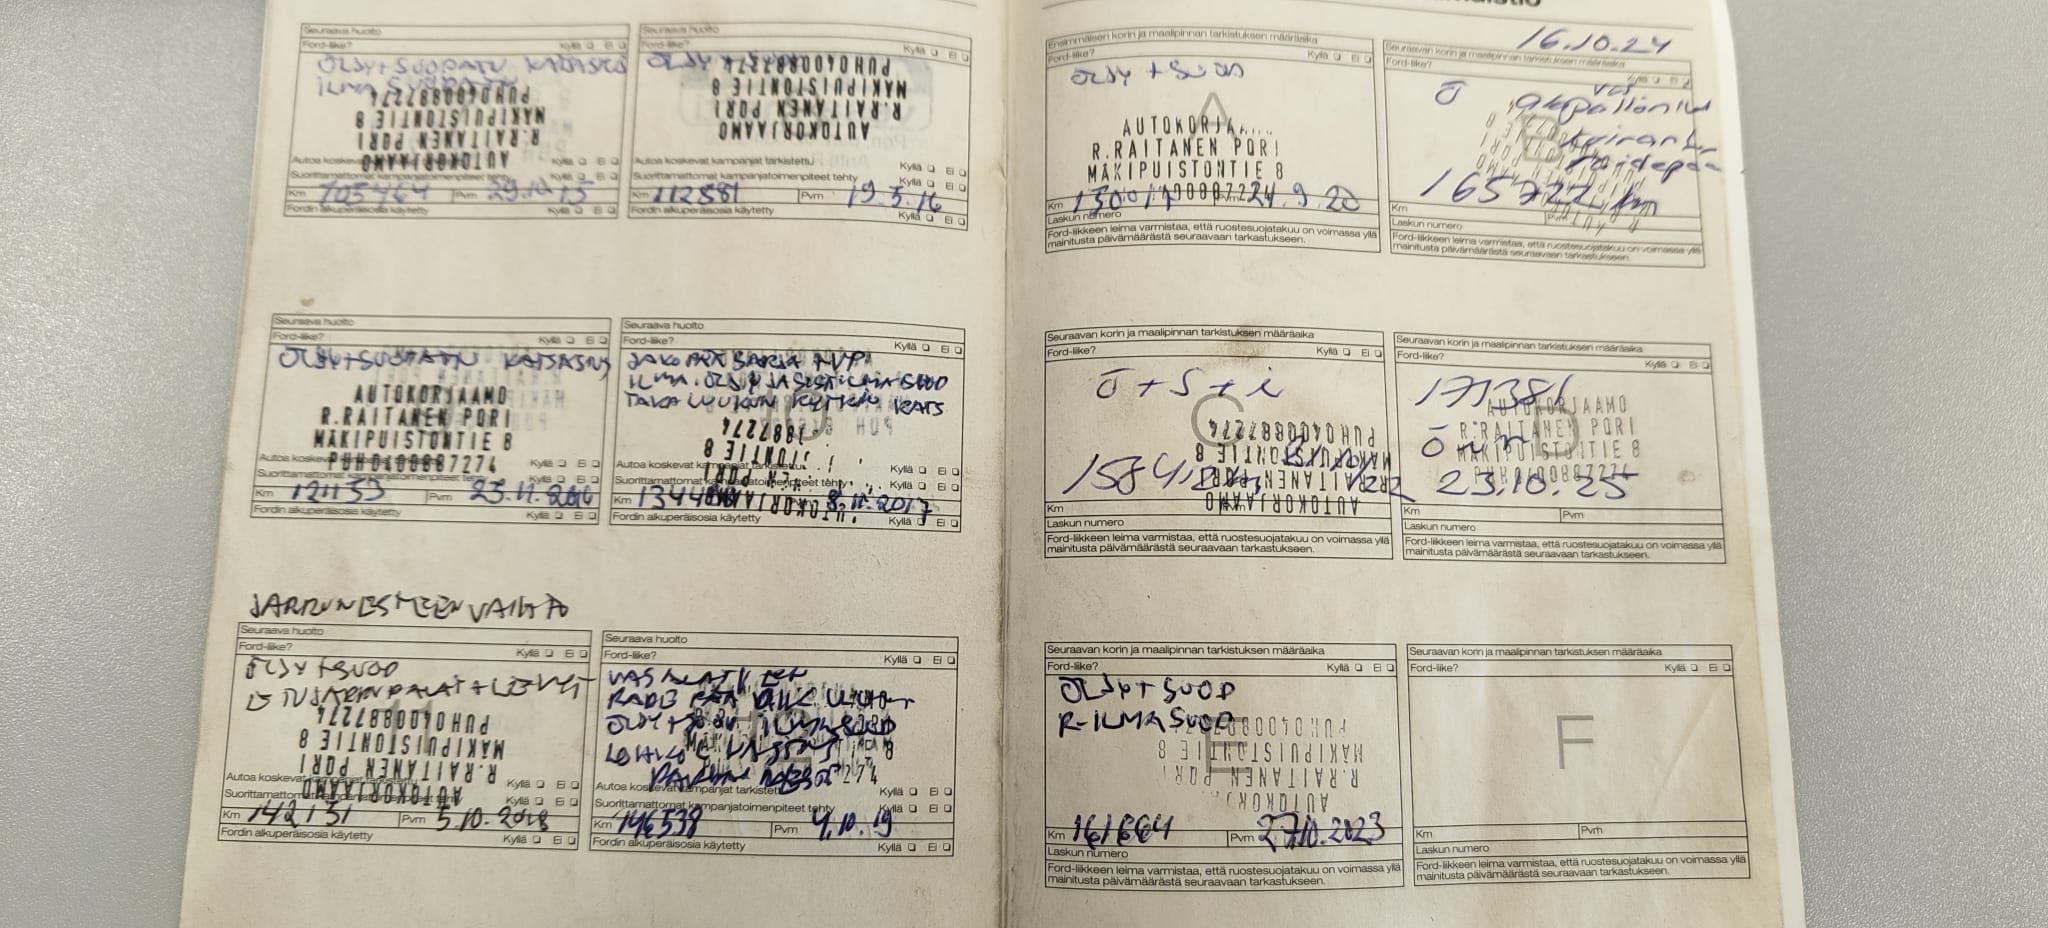 Seuraava huolto
Ford-liike? Kyllä Ei
ÖLJY+SUODATIN KATSASTUS
ILMA SUODATIN
PUH0400887274
MÄKIPUISTONTIE 8
R.RAITANEN PORI
AUTOKORJAAMO
Autoa koskevat kampanjat tarkistettu Kyllä Ei
Suorittamattomat kampanjatoimenpiteet tehty Kyllä Ei
Km 105464 Pvm 29.10.15
Fordin alkuperäisosia käytetty Kyllä Ei
Seuraava huolto
Ford-liike? Kyllä Ei
ÖLJY
PUH0400887274
MÄKIPUISTONTIE 8
R.RAITANEN PORI
AUTOKORJAAMO
Autoa koskevat kampanjat tarkistettu Kyllä Ei
Suorittamattomat kampanjatoimenpiteet tehty Kyllä Ei
Km 112881 Pvm 19.5.16
Fordin alkuperäisosia käytetty Kyllä Ei
Seuraava huolto
Ford-liike? Kyllä Ei
ÖLJY+SUODATIN KATSASTUS
AUTOKORJAAMO
R.RAITANEN PORI
MÄKIPUISTONTIE 8
PUH0400887274
Autoa koskevat Kyllä Ei
Suorittamattomat kampanjatoimenpiteet tehty Kyllä Ei
Km Pvm 23.11.2016
Fordin alkuperäisosia käytetty Kyllä Ei
Seuraava huolto
Ford-liike? Kyllä Ei
JAKOPÄÄ SARJA + VP
ILMA. ÖLJY JA SISÄILMA SUOD
TAKALUUKUN KYTKIN KATS
Autoa koskevat kampanjat tarkistettu Kyllä Ei
Suorittamattomat kampanjatoimenpiteet tehty Kyllä Ei
Km Pvm 8.11.2017
Fordin alkuperäisosia käytetty Kyllä Ei
JARRUNESTEEN VAIHTO
Seuraava huolto
Ford-liike? Kyllä Ei
ÖLJY+SUOD
11
PUH0400887274
MÄKIPUISTONTIE 8
R.RAITANEN PORI
AUTOKORJAAMO
Autoa koskevat kampanjat tarkistettu Kyllä Ei
Suorittamattomat kampanjatoimenpiteet tehty Kyllä Ei
Km 142151 Pvm 5.10.2018
Fordin alkuperäisosia käytetty Kyllä Ei
Seuraava huolto
Ford-liike? Kyllä Ei
ÖLJY+SUOD ILMASUOD
Autoa koskevat kampanjat tarkistettu Kyllä Ei
Suorittamattomat kampanjatoimenpiteet tehty Kyllä Ei
Km 146538 Pvm 4.10.19
Fordin alkuperäisosia käytetty Kyllä Ei
Ensimmäisen korin ja maalipinnan tarkistuksen määräaika
Ford-liike? Kyllä Ei
ÖLJY + SUOD
A
AUTOKORJAA
R.RAITANEN PORI
MÄKIPUISTONTIE 8
Km Pvm 24.9.20
Laskun numero
Ford-liikkeen leima varmistaa, että ruostesuojatakuu on voimassa yllä
mainitusta päivämäärästä seuraavaan tarkastukseen.
16.10.24
Seuraavan korin ja maalipinnan tarkistuksen määräaika
Ford-liike? Kyllä Ei
Ö
alapallonivel
raidepää
B
165722 km
Km
Laskun numero Pvm
Ford-liikkeen leima varmistaa, että ruostesuojatakuu on voimassa yllä
mainitusta päivämäärästä seuraavaan tarkastukseen.
Seuraavan korin ja maalipinnan tarkistuksen määräaika
Ford-liike? Kyllä Ei
Ö + S + i
C
PUH0400887274
MÄKIPUISTONTIE 8
R.RAITANEN PORI
AUTOKORJAAMO
Km Pvm
Laskun numero
Ford-liikkeen leima varmistaa, että ruostesuojatakuu on voimassa yllä
mainitusta päivämäärästä seuraavaan tarkastukseen.
Seuraavan korin ja maalipinnan tarkistuksen määräaika
Ford-liike? Kyllä Ei
171381
AUTOKORJAAMO
R.RAITANEN PORI
MÄKIPUISTONTIE 8
PUH0400887274
D
23.10.25
Km Pvm
Laskun numero
Ford-liikkeen leima varmistaa, että ruostesuojatakuu on voimassa yllä
mainitusta päivämäärästä seuraavaan tarkastukseen.
Seuraavan korin ja maalipinnan tarkistuksen määräaika
Ford-liike? Kyllä Ei
ÖLJY+SUOD
R-ILMASUOD
E
MÄKIPUISTONTIE 8
R.RAITANEN PORI
AUTOKORJ
Km 161664 Pvm 27.10.2023
Laskun numero
Ford-liikkeen leima varmistaa, että ruostesuojatakuu on voimassa yllä
mainitusta päivämäärästä seuraavaan tarkastukseen.
Seuraavan korin ja maalipinnan tarkistuksen määräaika
Ford-liike? Kyllä Ei
F
Km Pvm
Laskun numero
Ford-liikkeen leima varmistaa, että ruostesuojatakuu on voimassa yllä
mainitusta päivämäärästä seuraavaan tarkastukseen.